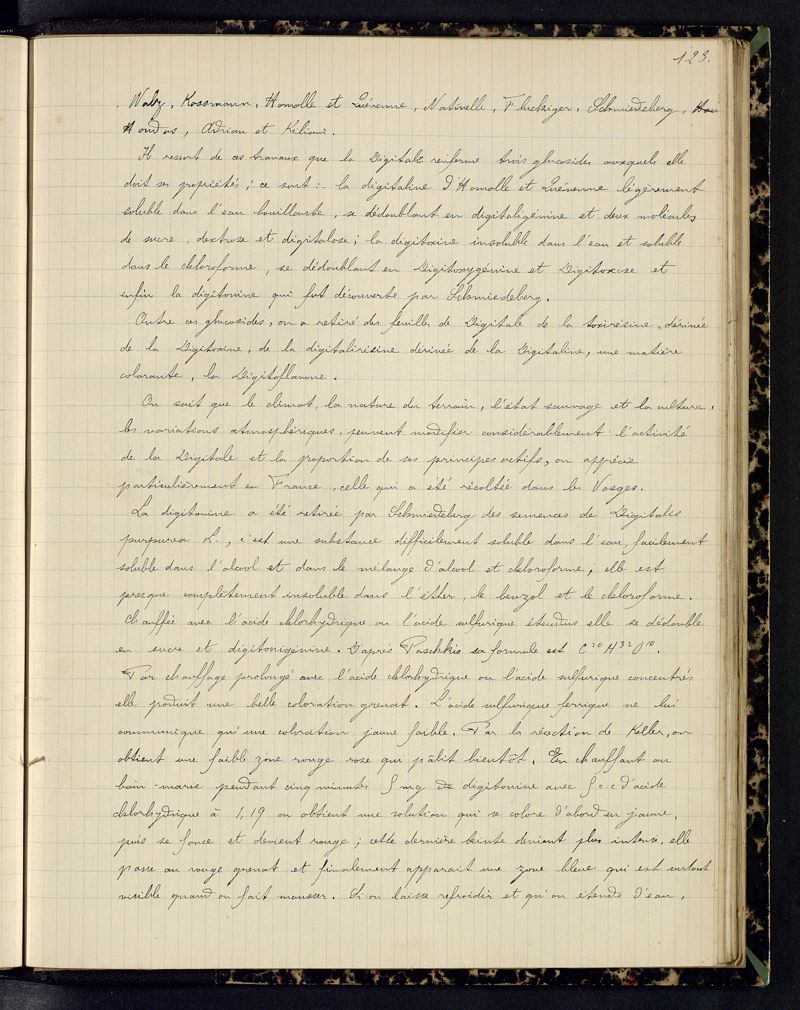 123.
Walz, Kossmann, Homolle et Quévenne, Nativelle, Fluckiger, Schmiedeberg, Hou
Houdas, Adrian et Kiliani.
Il ressort de ces travaux que la Digitale renferme trois glucosides auxquels elle
doit ses propriétés ; ce sont :- la digitaline d'Homolle et Quévenne légèrement
soluble dans l'eau bouillante, se dédoublant en digitaligénine et deux molécules
de sucre, dextrose et digitalose ; la digitoxine insoluble dans l'eau et soluble
dans le chloroforme, se dédoublant en Digitoxygénine et Digitoxose et
enfin la digitonine qui fut découverte par Schmiedeberg.
Outre ces glucosides, on a retiré des feuilles de Digitale de la toxirésine, dérivée
de la Digitoxine, de la digitalirésine dérivée de la Digitaline, une matière
colorante, la Digitoflavine.
On sait que le climat, la nature du terrain, l'état sauvage et la culture,
les variations atmosphériques, peuvent modifier considérablement l'activité
de la Digitale et la proportion de ses principes actifs, on apprécie
particulièrement en France, celle qui a été récoltée dans les Vosges.
La digitonine a été retirée par Schmiedeberg des semences de Digitalis
purpurea L., c'est une substance difficilement soluble dans l'eau, facilement
soluble dans l'alcool et dans le mélange d'alcool et chloroforme ; elle est
presque complètement insoluble dans l'éther, le benzol et le chloroforme.
Chauffée avec l'acide chlorhydrique ou l'acide sulfurique étendus elle se dédouble
en sucre et digitonigénine. D'après Paschkis sa formule est C²⁰H³²O¹⁰.
Par chauffage prolongé avec l'acide chlorhydrique ou l'acide sulfurique concentrés
elle produit une belle coloration grenat. L'acide sulfurique ferrique ne lui
communique qu'une coloration jaune faible. Par la réaction de Keller, on
obtient une faible zone rouge rose qui pâlit bientôt. En chauffant au
bain-marie pendant cinq minutes 5 mg de digitonine avec 5 c.c d'acide
chlorhydrique à 1,19 on obtient une solution qui se colore d'abord en jaune,
puis se fonce et devient rouge ; cette dernière teinte devient plus intense, elle
passe au rouge grenat et finalement apparait une zone bleue qui est surtout
visible quand on fait mousser. Si on laisse refroidir et qu'on étende d'eau,